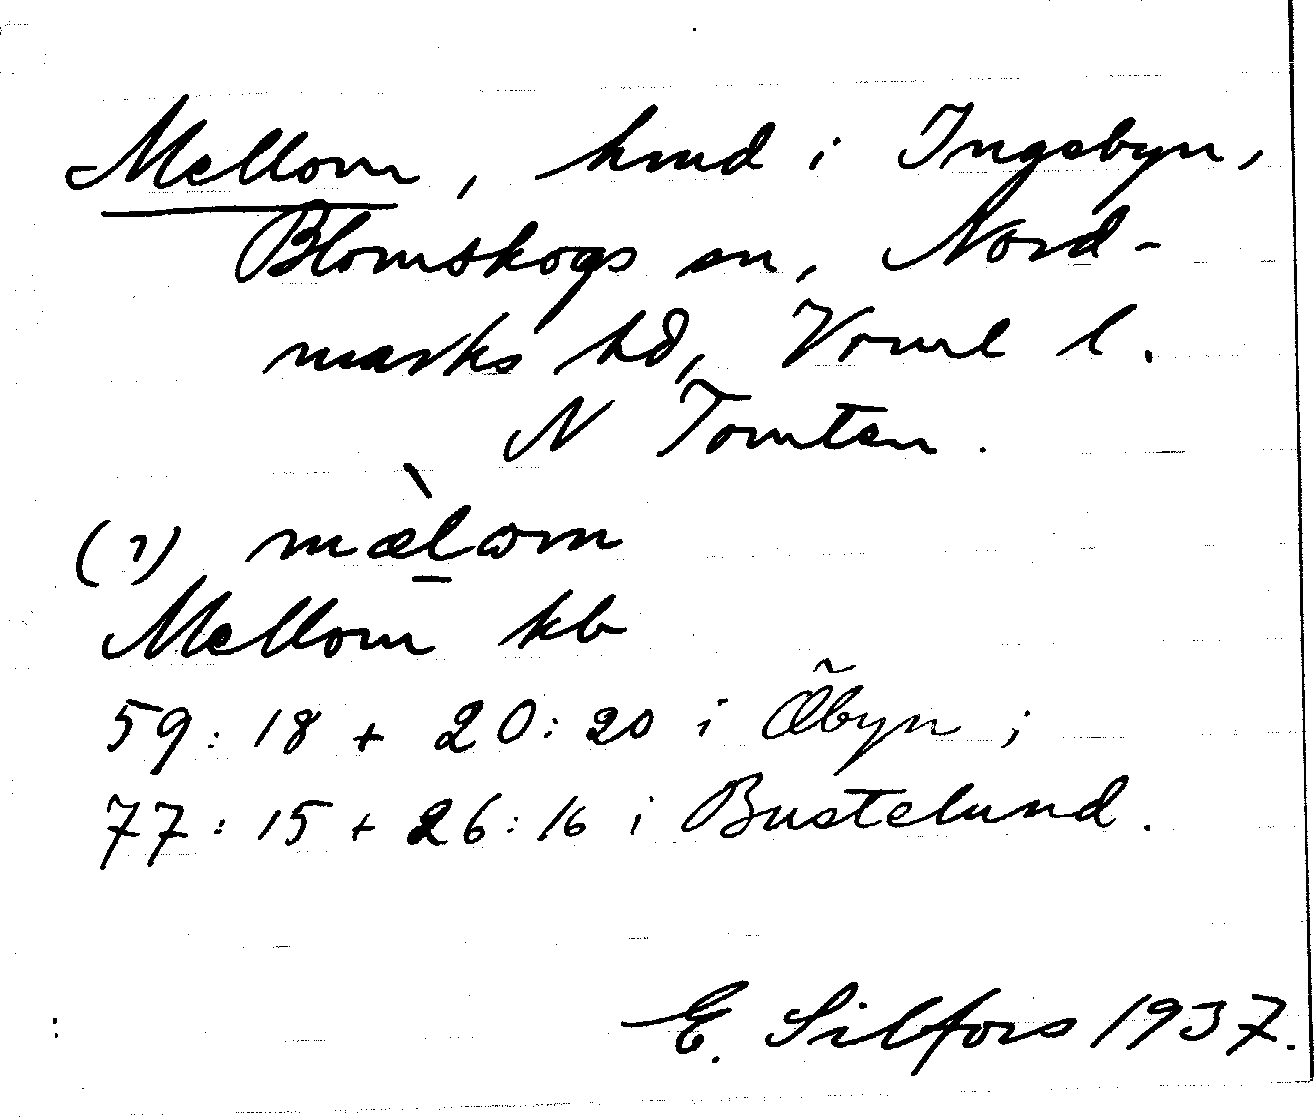 Mellom, hmd i Ingebyn,
Blomskogs sn, Nord-
marks hd, Vrml l.
N Tomten.
(1) mæ̀lɷm
Mellom kb
59:18 + 20:20 i Õbyn;
77:15 + 26:16 i Bustelund.
E. Silfors 1937.